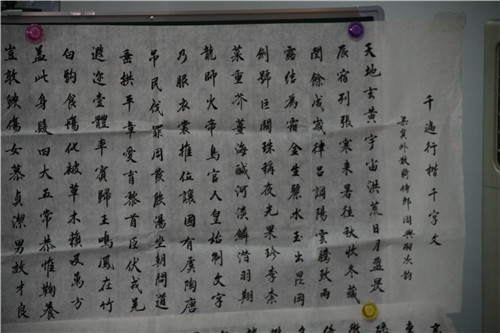 千遍行楷千字文
梁員外散騎侍郎周興嗣次韵
天地玄黃宇宙洪荒日月盈昃
辰宿列張寒來暑往秋收冬藏
閏餘成歲律呂調陽雲騰致雨
露結為霜金生麗水玉出崑岡
劍號巨闕珠稱夜光果珍李柰
菜重芥薑海鹹河淡鱗潛羽翔
龍師火帝鳥官人皇始制文字
乃服衣裳推位讓國有虞陶唐
吊民伐罪周發殷湯坐朝問道
垂拱平章愛育黎首臣伏戎羌
遐邇壹體率賓歸王鳴鳳在竹
白駒食場化被草木賴及萬方
蓋此身髮四大五常恭惟鞠養
豈敢毀傷女慕貞潔男效才良